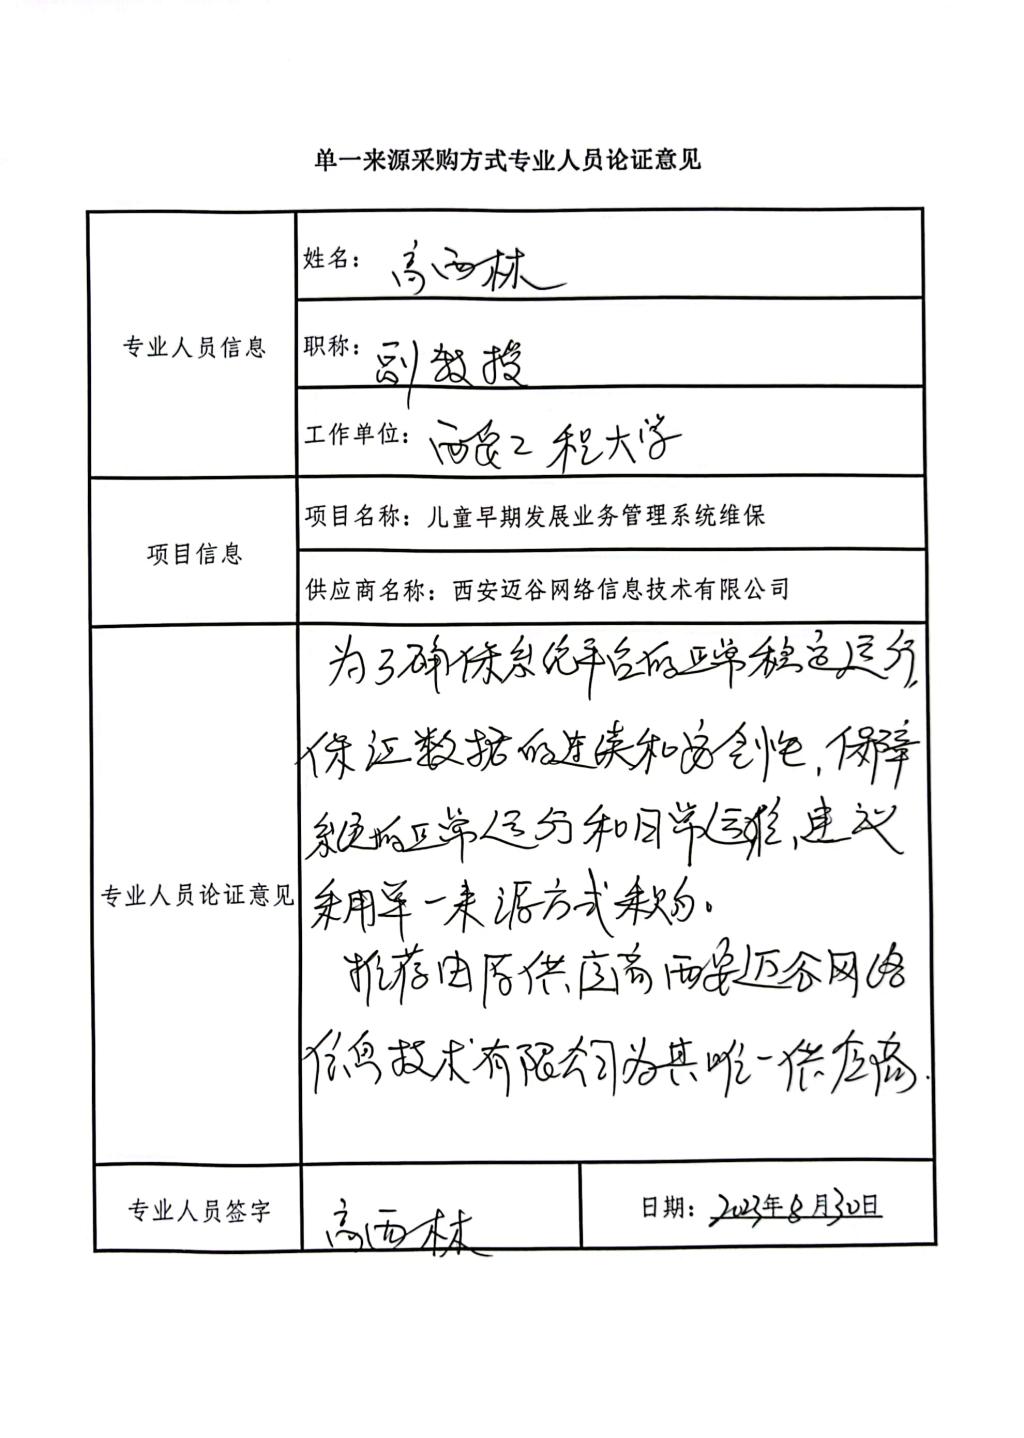 单一来源采购方式专业人员论证意见
专业人员信息
姓名：高西林
职称：副教授
工作单位：西安工程大学
项目信息
项目名称：儿童早期发展业务管理系统维保
供应商名称：西安迈谷网络信息技术有限公司
专业人员论证意见
为了确保系统平台的正常稳定运行，
保证数据的连续和安全性，保障
系统的正常运行和日常运维，建议
采用单一来源方式采购。
推荐由原供应商西安迈谷网络
信息技术有限公司为其唯一供应商.
专业人员签字
高西林
日期：2023年8月30日